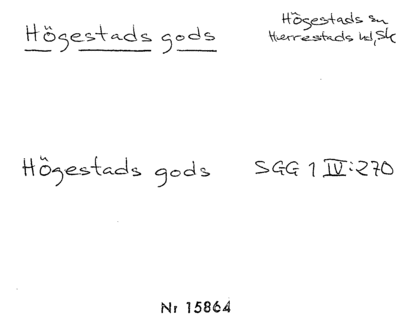 Högestads gods
Högestads sn
Herrestads hd, Sk
Högestads gods SGG 1 IV:270
Nr 15864